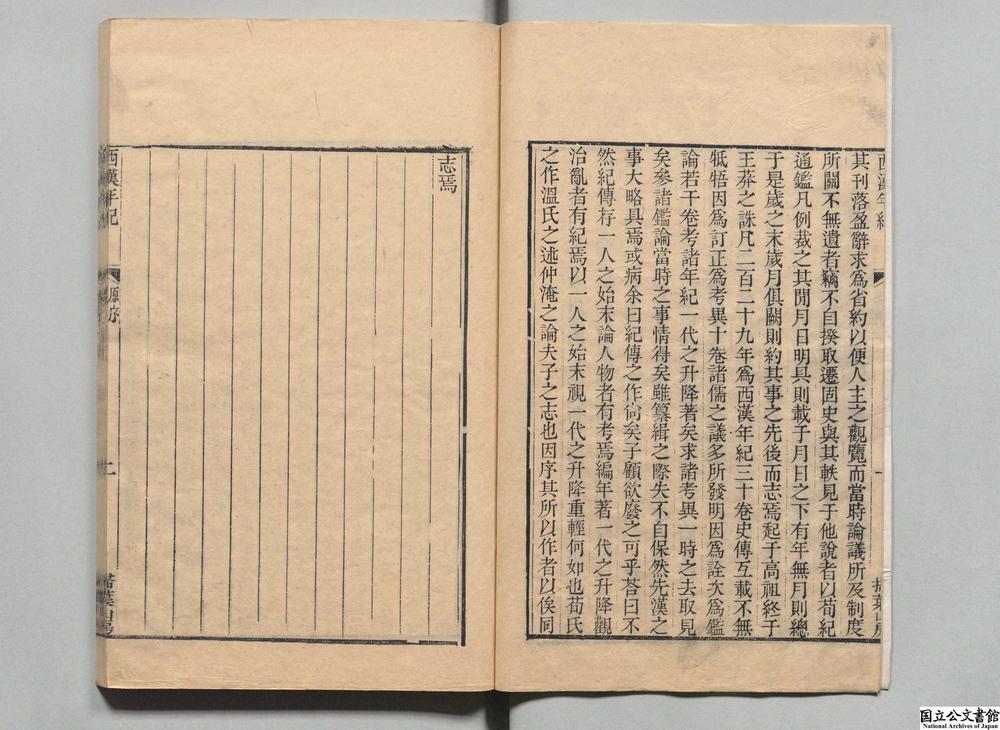 其刊落盈辭求爲省約以便人主之觀覽而當時論議所及制度
所關不無遺者竊不自揆取遷固史與其軼見于他說者以荀紀
通鑑凡例裁之其閒月日明具則載于月日之下有年無月則總
于是歲之末歲月俱闕則約其事之先後而志焉起于高祖終于
王莽之誅凡二百二十九年爲西漢年紀三十卷史傳互載不無
牴牾因爲訂正爲考異十卷諸儒之議多所發明因爲詮次爲鑑
論若干卷考諸年紀一代之升降著矣求諸考異一時之去取見
矣參諸鑑論當時之事情得矣雖纂緝之際失不自保然先漢之
事大略具焉或病余曰紀傳之作尙矣子顧欲廢之可乎荅曰不
然紀傳存一人之始末論人物者有考焉編年著一代之升降觀
治亂者有紀焉以一人之始末視一代之升降重輕何如也荀氏
之作溫氏之述仲淹之論夫子之志也因序其所以作者以俟同
志焉
西漢年紀
原序
二
掃葉山房
国立公文書館
National Archives of Japan